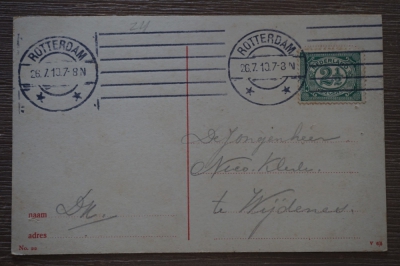 24
ROTTERDAM
26.7.10.7-8 N
ROTTERDAM
26.7.10.7-8 N
NEDERLAND
2½
De Jongenheer
Nico
te Wijdenes
naam
adres
No. 20